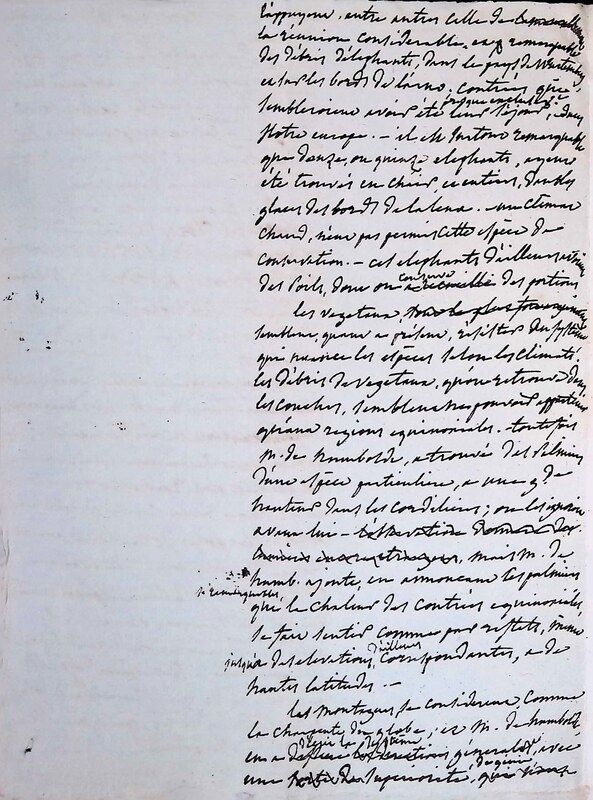 l'appuyent, entre autres celle de
la réunion considérable, et remarquable
des débris d'éléphants, dans le pays de Wurtemberg
et sur les bords de l'arno, contrées que
sembleroient avoir été leur séjour, dans
Notre europe. – il est partout remarquable
que douze, ou quinze elephants, ayent
été trouvés en chair, et entiers, dans les
glaces des bords de la lena. – un climat
chaud, n'eut pas permis cette espèce de
conservation. – ces elephants d'ailleurs
des Poils, dont on conserve des portions
les vegetaux,
semblent, quant a présent, résister du système
que nuance les espèces selon les climats.
les débris de vegetaux, qu'on retrouve dans
les couches, semblent ne pouvoir appartenir
qu'aux regions equinoxiales. – toutefois
M. de humboldt, a trouvé des Palmiers
d'une espèce particulière, a une g.de
hauteur dans les cordelieres; on les ignoroit
avant lui – l'observation
mais M. de
humb. ajoute, en annoncant les palmiers
si remarquables
que la chaleur des contrées equinoxiales,
se fait sentir comme par reflets, même
d'ailleurs
jusqu'a des elevations, correspondantes, a de
hautes latitudes. –
les Montagnes se considerent, comme
la charpente du globe; et M. de humboldt
en a generales, avec
une superiorité, de genie